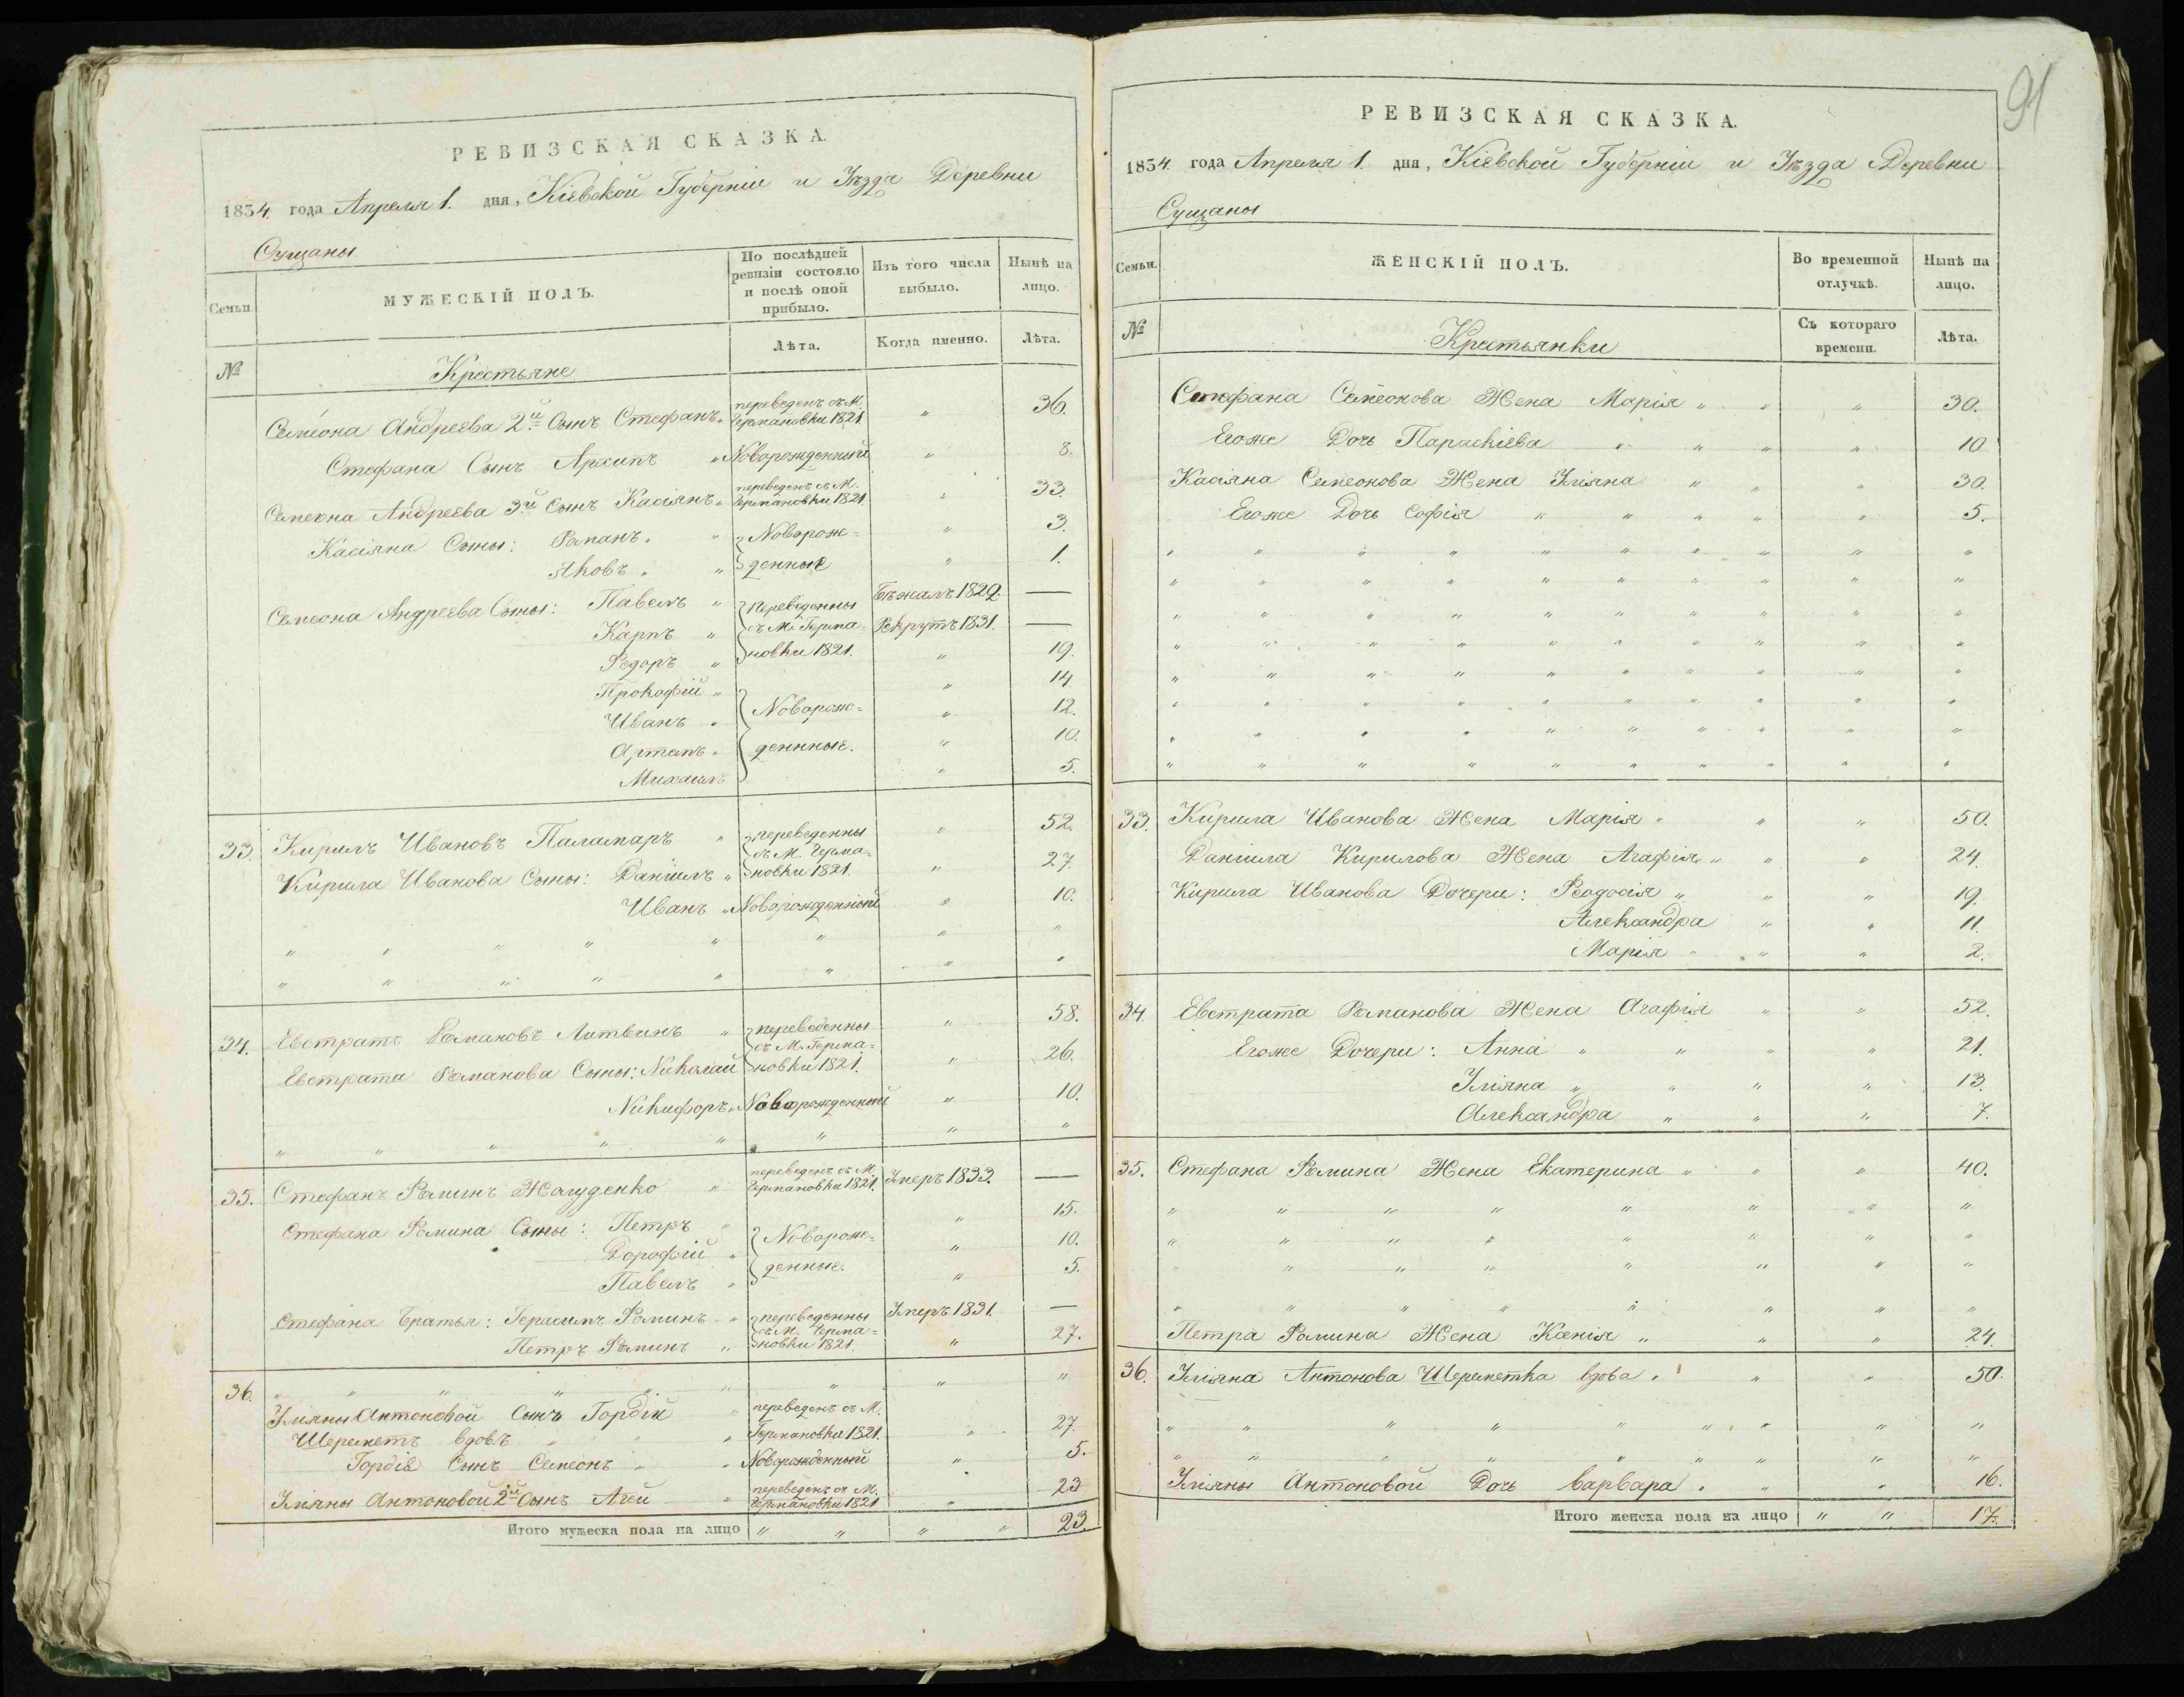 РЕВИЗСКАЯ СКАЗКА.
1834. года Апреля 1. дня, Кіевской Губерніи и Уѣзда Деревни
Сущаны
Семьи.
МУЖЕСКІЙ ПОЛЪ.
По послѣдней ревизіи состояло и послѣ оной прибыло.
Изъ того числа выбыло.
Нынѣ на лицо.
№
Крестьяне
Лѣта.
Когда именно.
Лѣта.
Семеона Андреева 2й Сынъ Стефанъ " переведенъ съ М. Германовки 1821. " 36.
Стефана Сынъ Архипъ " Новорожденный " 8.
Семеона Андреева 3й Сынъ Касіянъ " переведенъ съ М. Германовки 1821. " 33.
Касіяна Сыны: Романъ " " Новорож= " 3.
Яковъ " " денные " 1.
Семеона Андреева Сыны: Павелъ " переведенны Бѣжалъ 1829. —
Карпъ " съ М. Герма= Рекрутъ 1831. —
Ѳедоръ " новки 1821. " 19.
Прокофій " " 14.
Иванъ " Новорож= " 12.
Артемъ " деннные. " 10.
Михаилъ " 5.
33. Кирилъ Ивановъ Паламаръ " переведенны " 52.
съ М. Герма=
Кирила Иванова Сыны: Даніилъ " новки 1821. " 27.
Иванъ " Новорожденный " 10.
" " " " " " " "
" " " " " " " "
34. Евстратъ Романовъ Литвинъ " переведенны " 58.
съ М. Герма=
Евстрата Романова Сыны: Николай новки 1821. " 26.
Никифоръ " Новорожденный " 10.
" " " " " " " "
35. Стефанъ Ѳоминъ Жагуденко " переведенъ съ М. Германовки 1821. Умеръ 1833. —
Стефана Ѳомина Сыны: Петръ " Новорож= " 15.
Дорофій " " 10.
Павелъ " денные. " 5.
Стефана Братья: Герасимъ Ѳоминъ " переведенны Умеръ 1831. —
съ М. Герма=
Петръ Ѳоминъ " новки 1821. " 27.
36. " " " " " " " " "
Уліяны Антоновой Сынъ Гордій " переведенъ съ М.
Шереметъ вдовѣ " " " " Германовки 1821. " 27.
Гордія Сынъ Семеонъ " " Новорожденный " 5.
Уліяны Антоновой 2й Сынъ Агей " переведенъ съ М. Германовки 1821 " 23
Итого мужеска пола на лицо " " " " 23.
91
РЕВИЗСКАЯ СКАЗКА.
1834. года Апреля 1. дня, Кіевской Губерніи и Уѣзда Деревни
Сущаны
Семьи.
ЖЕНСКІЙ ПОЛЪ.
Во временной отлучкѣ.
Нынѣ на лицо.
№
Крестьянки
Съ котораго времени.
Лѣта.
Стефана Семеонова Жена Марія " " " 30.
Егоже Дочь Параскіева " " " " 10
Касіяна Семеонова Жена Уліяна " " " 30.
Егоже Дочь Софія " " " " " 5.
" " " " " " " " " "
" " " " " " " " " "
" " " " " " " " " "
" " " " " " " " " "
" " " " " " " " " "
" " " " " " " " " "
" " " " " " " " " "
" " " " " " " " " "
33. Кирила Иванова Жена Марія " " " 50.
Даніила Кирилова Жена Агафія " " " 24.
Кирила Иванова Дочери: Ѳеодосія " " " 19.
Александра " " 11.
Марія " " " 2.
34. Евстрата Романова Жена Агафія " " 52.
Егоже Дочери: Анна " " " " 21.
Уліяна " " " " 13.
Александра " " " 7.
35. Стефана Ѳомина Жена Екатерина " " " 40.
" " " " " " " "
" " " " " " " "
" " " " " " " "
" " " " " " " "
Петра Ѳомина Жена Ксенія " " " 24.
36. Уліяна Антонова Шереметка вдова " " " 50.
" " " " " " " " "
" " " " " " " " "
Уліяны Антоновой Дочь Варвара " " " 16.
Итого женска пола на лицо " " 17.